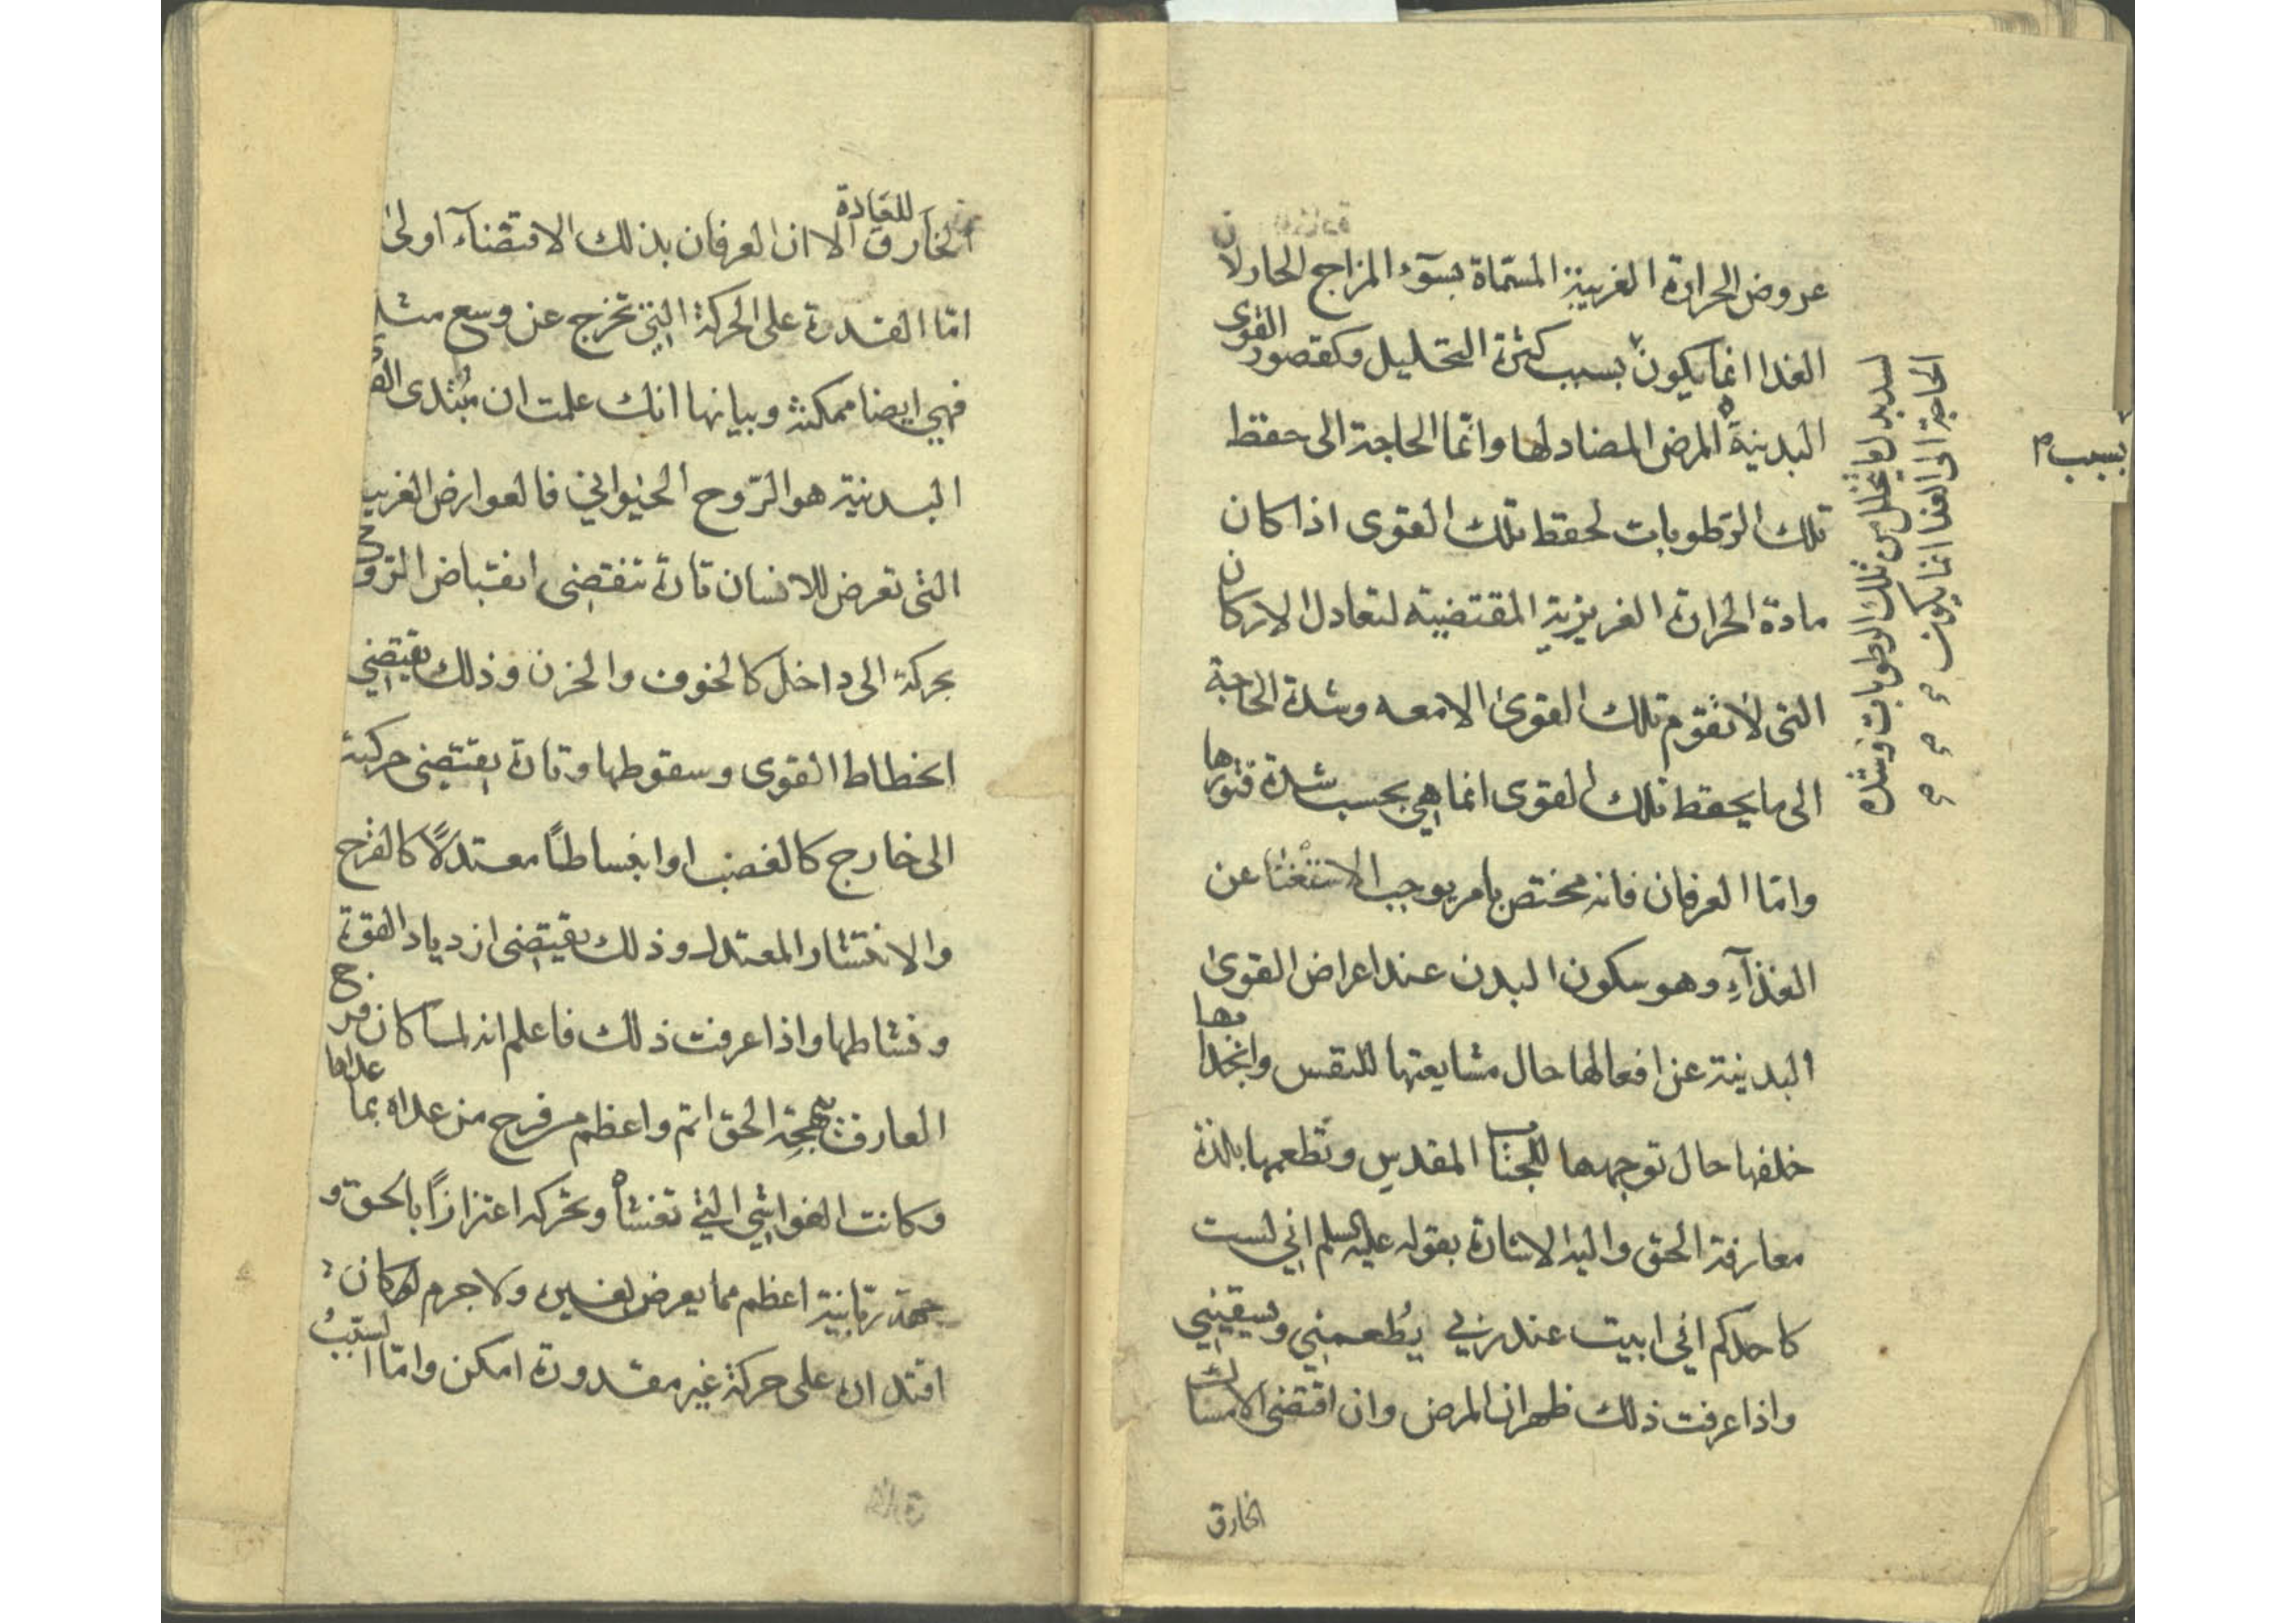 عروض الحرارة الغريبة المسماة بسوٓء المزاج الحار لان
الغذا انما يكون بسبب كثرة التحليل وكقصور القوى
البدنية المرض المضاد لها وانما الحاجة الى حفظ
تلك الرطوبات لحفظ تلك القوى اذا كان
مادة الحرارة الغريزية المقتضية لتعادل الاركان
التى لا تقوم تلك القوى الا معه وشدة الحاجة
الى ما يحفظ تلك القوى انما هي بحسب شدة فتورها
وامّا العرفان فانه مختص بامر يوجب الاستغنا عن
الغذآءِ وهو سكون البدن عند اعراض القوى
البدنية عن افعالها حال مشايعتها للنفس وانجذابها
خلفها حال توجهها للجناب المقدس وتطعمها بلذة
معارفة الحق واليه الاشارة بقوله عليه السلم اني لست
كاحدكم اني ابيت عند ربي يُطعمني ويسقيني
واذا عرفت ذلك ظهر ان المرض وان اقتضى الامساك
الخارق
لسد بدل ما يتحلل من تلك الرطوبات وشدة
الحاجة الى الغذا انما يكون
بسبب م
الخارق للعادة الا ان العرفان بذلك الاقتضآء اولى
امّا القدرة على الحركة التي تخرج عن وسع مثله
فهي ايضا ممكنة وبيانها انك علمت ان مبدى القوى
البدنية هو الرّوح الحيواني فالعوارض الغريبة
التى تعرض للانسان تارة تقتضى انقباض الروح
بحركة الى داخل كالخوف والحزن وذلك يقتضي
انحطاط القوى وسقوطها وتارة يقتضى حركته
الى خارج كالغضب او انبساطًا معتدلًا كالفرح
والانتشار المعتدل وذلك يقتضى ازدياد القوة
ونشاطها واذا عرفت ذلك فاعلم انه لما كان فرح
العارف ببهجة الحق اتم واعظم من فرح من عداه بما عداها
وكانت الغواشي التي تغشاه وتحركه اعتزازًا بالحق و
حمية ربانية اعظم مما يعرض لغيره ولا جرم لو كان
اقتداره على حركة غير مقدورة امكن وامّا السبب